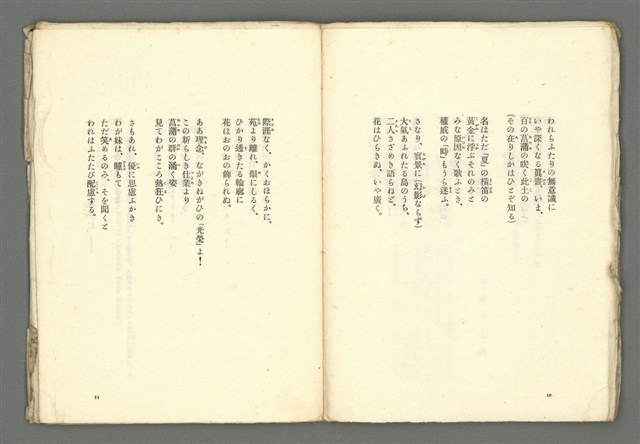 われらふたりの無意識に
いや深くなる眞晝、いま、
百の菖蒲の咲く此土の
(その在りしかはひとぞ知る)
名はただ「夏」の橫笛の
黃金に浮ぶそれのみと
みな原因なく歌ふとき、
權威の「時」もうら迷ふ。
さなり、實景に(幻影ならず)
大氣あふれたる島のうち、
二人さざめき語らねど、
花はひらきぬ、いや廣く。
10
際涯なく、かくおほらかに、
苑より離れ、眼にしるく、
ひかり透きたる輪廓に
花はおのおの飾られぬ。
ああ理念、ながきねがひの「光榮」よ!
この新らしき仕業より
菖蒲の群の湧く姿
見てわがこころ熱狂ひにき。
さもあれ、優に思慮ふかき
わが妹は、瞳もて
ただ笑めるのみ、そを聞くと
われはふたたび配慮する。
11